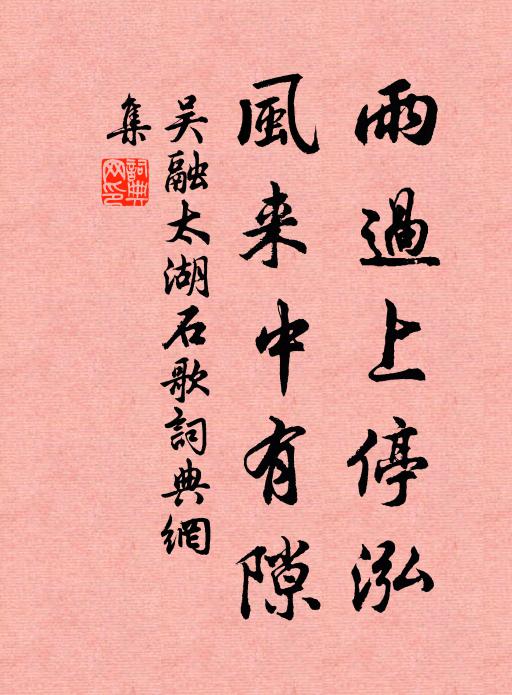 雨過上停泓
風来中有隙
吴融太湖石歌詞典網
集
詞典網印